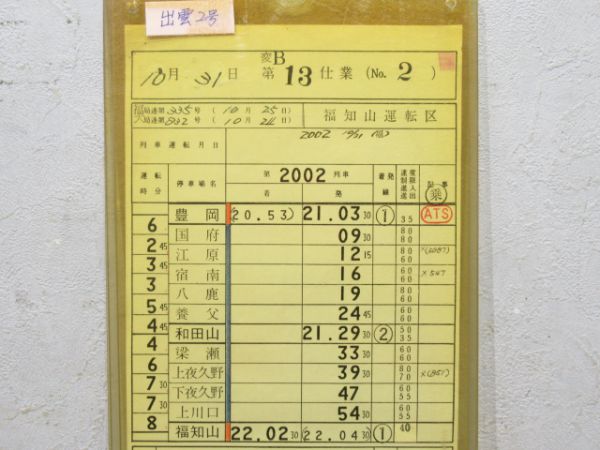 出雲2号
10月 31日 変B第13仕業 (No. 2 )
福局達第335号 ( 10月 25日)
大局達第802号 ( 10月 24日)
福知山運転区
2002 10/31
列車運転月日
運転時分 停車場名 第 2002 列車 着発線 制限速度 記事
着 発
乗
豊岡 (20.53) 21.03 30 ① 35 ATS
6 国府 09 30 80 80
2 45 江原 12 15 60 60
3 45 宿南 16 60 60
3 八鹿 19 80 60
5 45 養父 24 45 60 60
4 45 和田山 21.29 30 ② 50 35
4 梁瀬 33 30 60 60
6 上夜久野 39 30 80 70
7 30 下夜久野 47 60 55
7 30 上川口 54 30 60 55
8 福知山 22.02 30 (22.04 30) ① 40